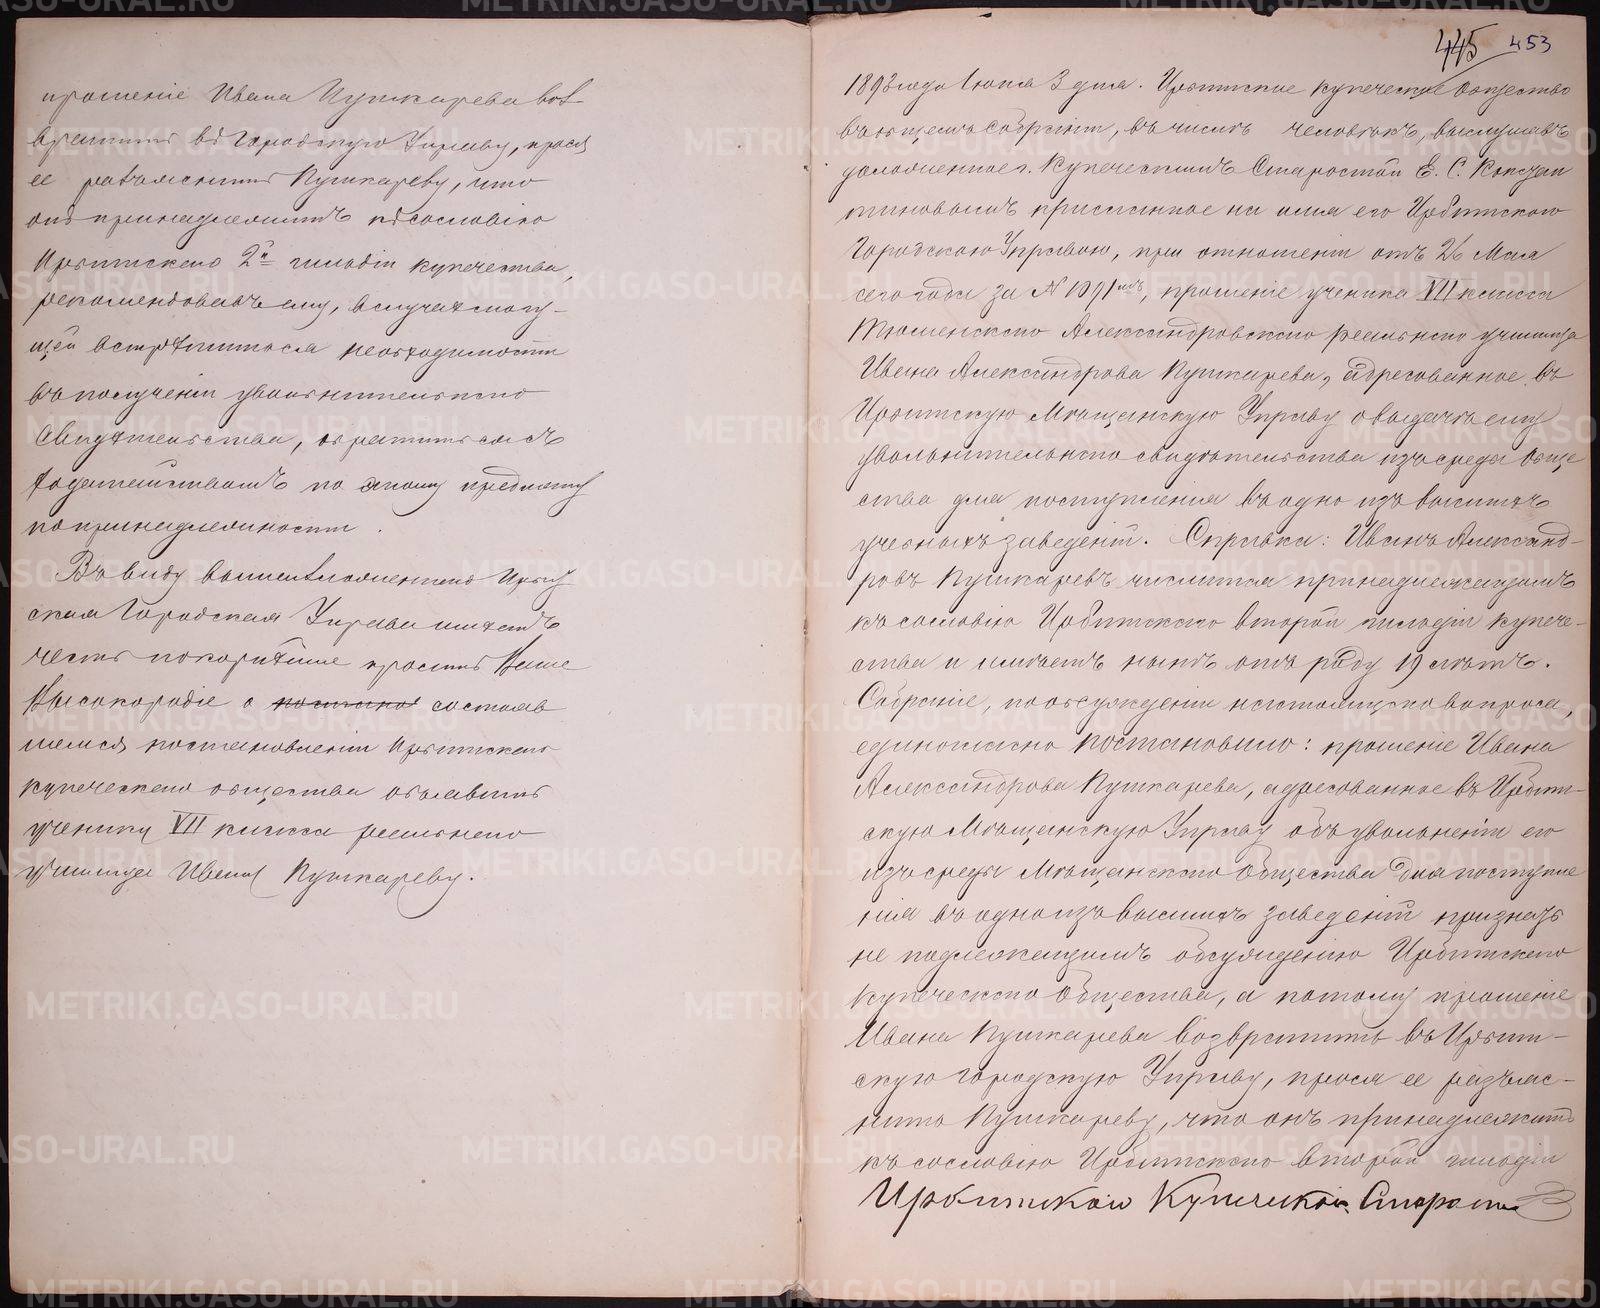 прошеніе Ивана Пушкарева воз-
вратить въ Городскую Управу, прося
ее разъяснить Пушкареву, что
онъ принадлежитъ къ сословію
Ирбитскаго 2й гильдіи купечества,
рекомендовавъ ему, въ случаѣ могу-
щей встрѣтиться необходимости
въ полученіи увольнительнаго
свидѣтельства, обратиться съ
ходатайствомъ по этому предмету
по принадлежности.
Въ виду вышеизложеннаго Ирбит
ская Городская Управа имѣетъ
честь покорнѣйше просить Ваше
Высокородіе о состояв
шемся постановленіи Ирбитскаго
купеческаго общества объявить
ученику VII класса реальнаго
училища Ивану Пушкареву.
445 453
1893 года Іюня 3 дня. Ирбитское купеческое Общество
въ общемъ собраніи, въ числѣ человѣкъ, выслушавъ
доложенное г. Купеческимъ Старостой Е. С. Констан
тиновымъ присланное на имя его Ирбитскою
Городскою Управою, при отношеніи отъ 26 Мая
сего года за № 1091мъ, прошеніе ученика VII класса
Тюменскаго Александровскаго реальнаго училища
Ивана Александрова Пушкарева, адресованное въ
Ирбитскую Мѣщанскую Управу о выдачѣ ему
увольнительнаго свидѣтельства изъ среды Обще
ства для поступленія въ одно изъ высшихъ
учебныхъ заведеній. Справка: Иванъ Александ-
ровъ Пушкаревъ числится принадлежащимъ
къ сословію Ирбитскаго второй гильдіи купече-
ства и имѣетъ нынѣ отъ роду 19 лѣтъ.
Собраніе, по обсужденіи настоящаго вопроса,
единогласно постановило: прошеніе Ивана
Александрова Пушкарева, адресованное въ Ирбит-
скую Мѣщанскую Управу объ увольненіи его
изъ среды Мѣщанскаго Общества для поступле
нія въ одно изъ высшихъ заведеній признать
не подлежащимъ обсужденію Ирбитскаго
Купеческаго Общества, а потому прошеніе
Ивана Пушкарева возвратить въ Ирбит-
скую Городскую Управу, прося ее разъяс-
нить Пушкареву, что онъ принадлежитъ
къ сословію Ирбитскаго второй гильдіи
Ирбитской Купеческой Старост
METRIKI.GASO-URAL.RU